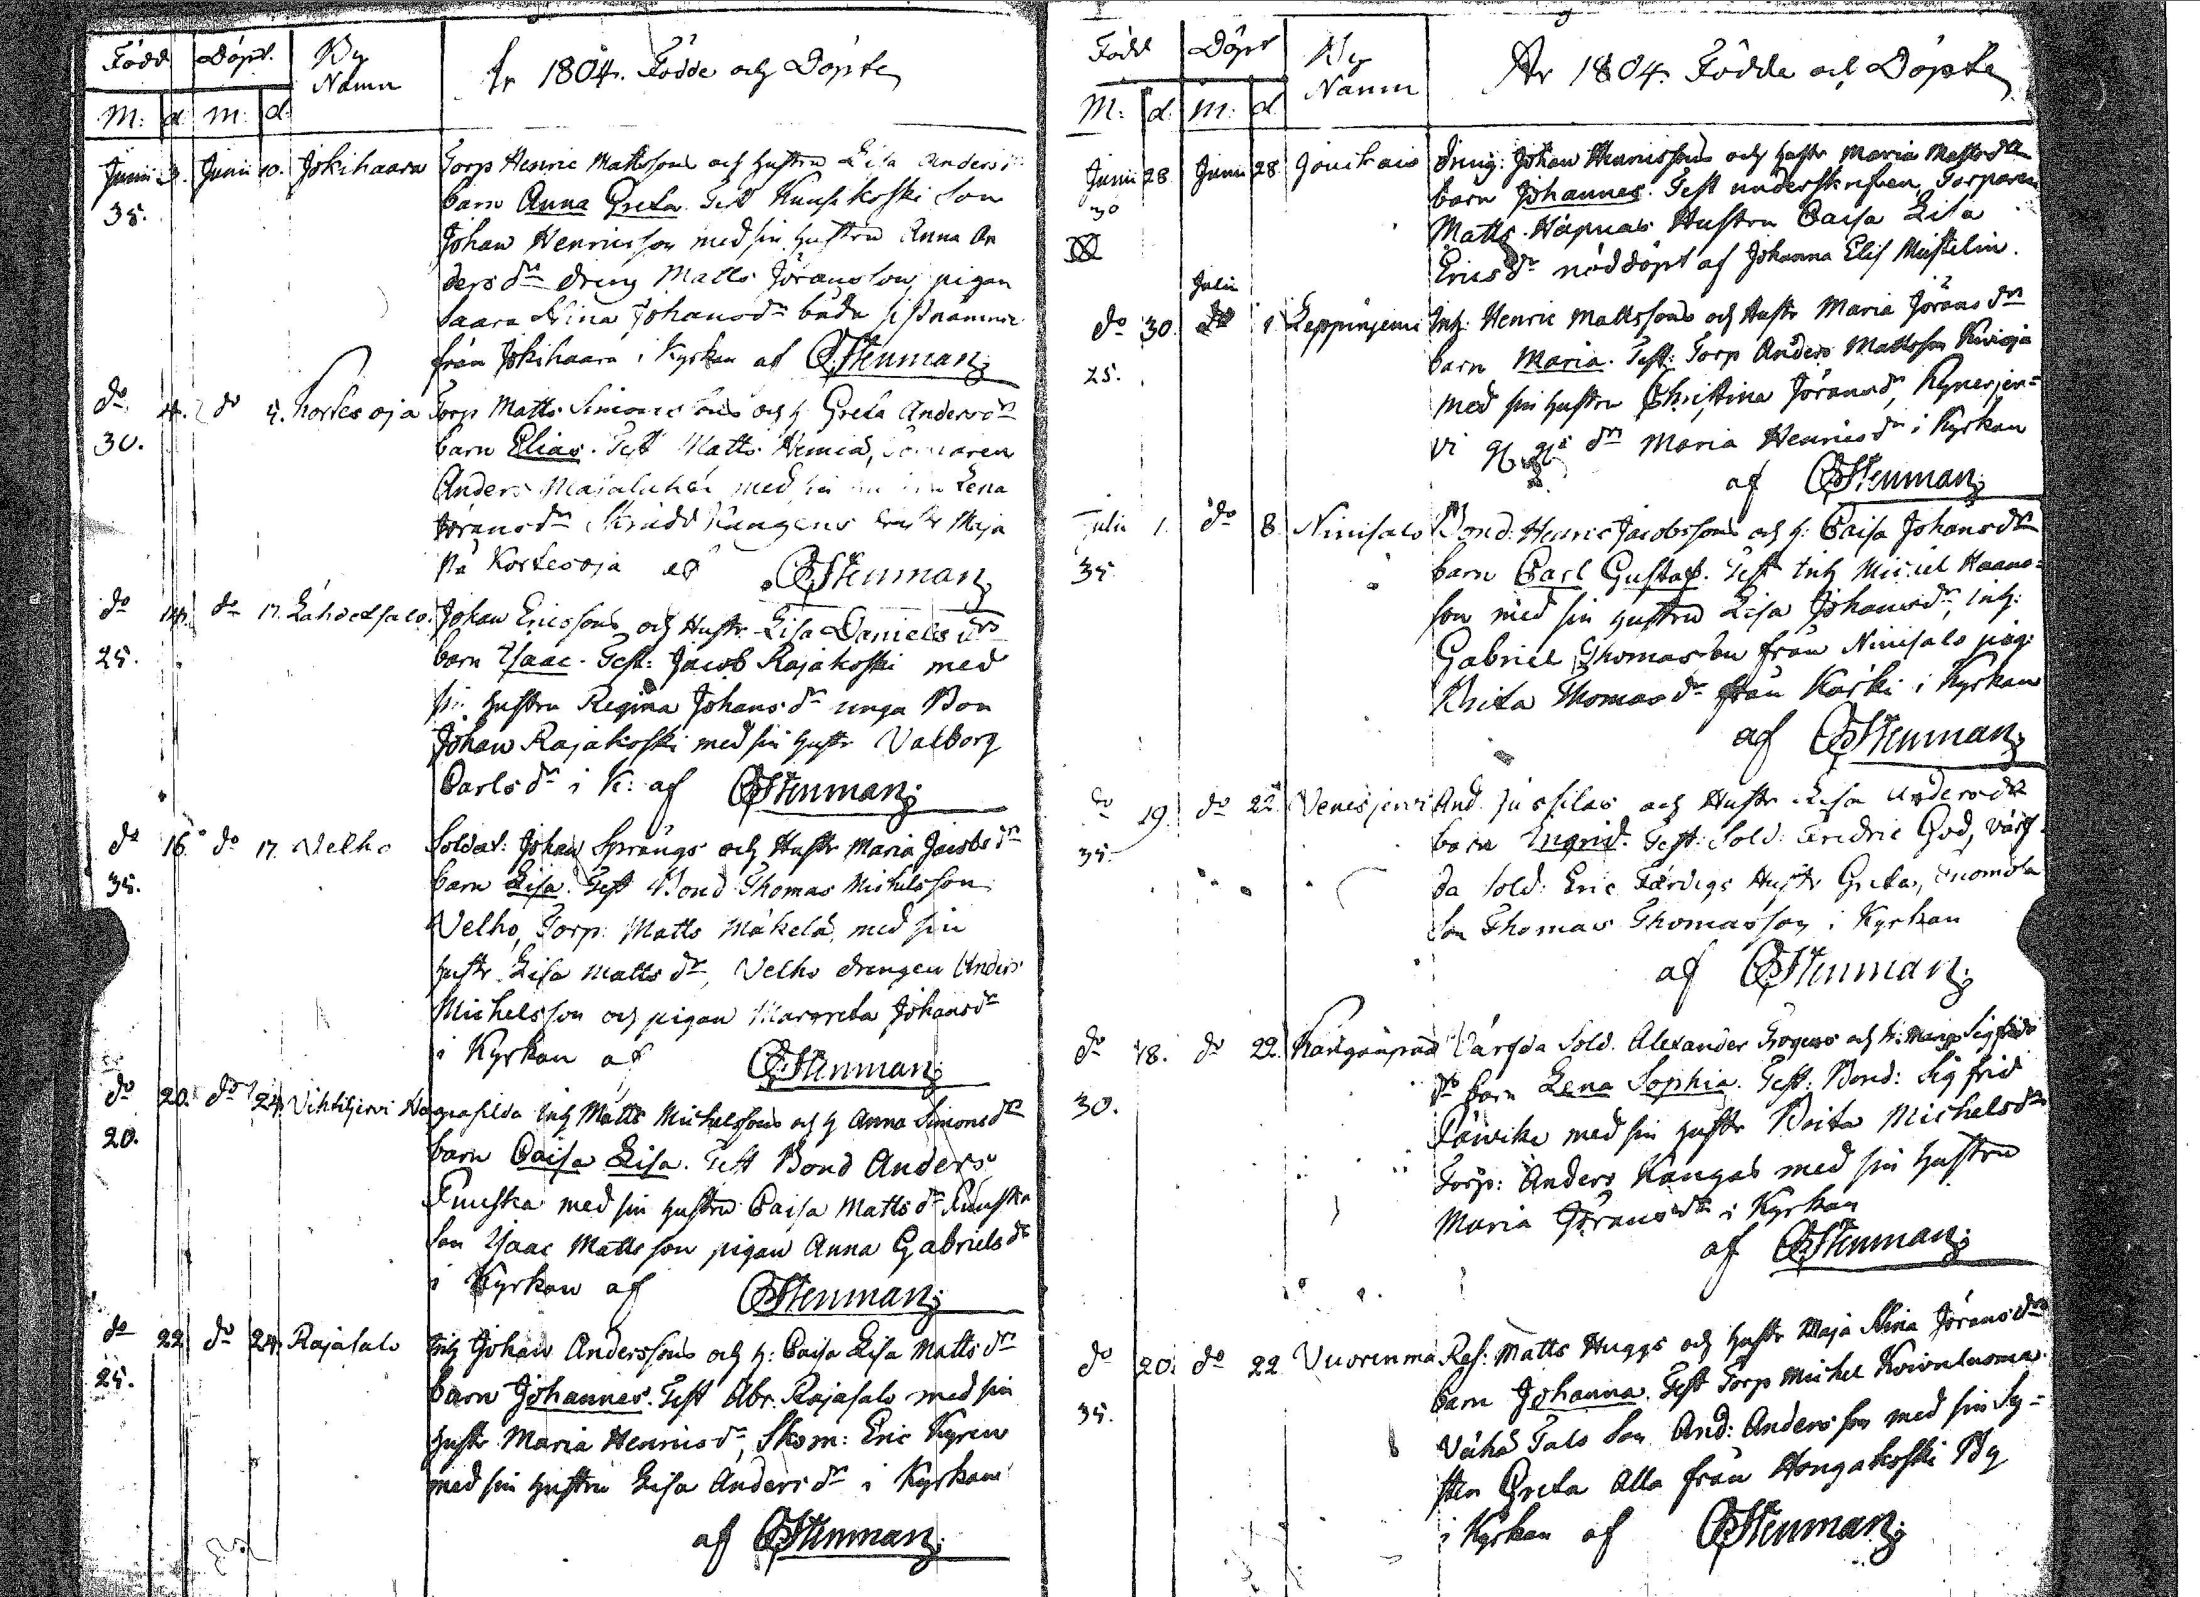 Född Döpt. By Namn År 1804. Födde och Döpte
M: d m: d
Junii 3. Junii 10. Jokihaara Torp Henric Mattssons och hustru Lisa Anders
35. barn Anna Greta. Test Kuusikoski Son
Johan Henricsson med sin hustru Anna An
ders dr dreng Matts Jöransson, pigan
Saara Stina Johans dr båda sistnämnde
från Jokihaara i Kyrkan af CStenman
do 4. do 5. Kortesoja Torp Matts Simons sons och h Greta Anders dr
30. barn Elias. Test Matts
Anders med sin Lena
Jörans dr Maja
på Kortesoja af CStenman
do 14. do 17. Lähdesalo Johan Ericssons och Hustr Lisa Daniels drs
25. barn Isaac. Test: Jacob Rajakoski med
sin hustru Regina Johans dr unga Bon
Johan Rajakoski med sin hustr Valborg
Carls dr i K: af CStenman
do 16 do 17. Velho Soldat: Johan Sprängs och Hustr Maria Jacobs dr
35. barn Lisa. Test Bond Thomas Michelsson
Velho, Torp: Matts Mäkelä, med sin
hustr Lisa Matts dr, Velho drengen Anders
Michelsson och pigan Margreta Johans dr
i Kyrkan af CStenman
do 20. do 24. Vihtijervi Inh Matts Michelssons och h Anna Simons dr
20. barn Caisa Lisa. Test Bond Anders
Puuska med sin hustru Caisa Matts dr Puuska
Son Isaac Matts son pigan Anna Gabriels dr
i Kyrkan af CStenman
do 22 do 24. Rajasalo Inh Johan Anderssons och h: Caisa Lisa Matts dr
25. barn Johannes. Test Abr. Rajasalo med sin
hustr Maria Henrics dr, Skom: Eric Kyren
med sin hustru Lisa Anders dr i Kyrkan
af CStenman
Född Döpt By Namn År 1804. Födde och Döpte
M: d m: d
Junii 28 Junii 28 Jouikais dräng: Johan Henricssons och hustr Maria Matts dr
30 barn Johannes. Test underskrefven, Torparen
Matts Häpuas Hustru Caisa Lisa
Erics dr nöddöpt af Johanna Elis Mustelin.
Julii
do 30. 1 Leppinjemi Inh: Henric Mattssons och Hustr Maria Jörans dr
25. barn Maria. Test: Torp Anders Mattsson Kivioja
med sin hustru Christina Jörans dr, Kynerjer=
vi dr Maria Henrics dr i Kyrkan
af CStenman
Julii 1. do 8 Ninisalo Bond: Henric Jacobssons och h: Caisa Johans dr
35. barn Carl Gustaf. Test Inh Michel Haans=
son med sin hustru Lisa Johans dr, Inh:
Gabriel Thomasson från Ninisalo pig:
Brita Thomas dr från Kärki i Kyrkan
af CStenman
do 19. do 22 Venesjervi And. Jussilas och Hustr Lisa Anders dr
35. barn Ingrid. Test: Sold: Fredric God, värf
da Sold: Eric Færdigs Hustr Greta,
Son Thomas Thomasson i Kyrkan
af CStenman
do 18. do 22. Kangaupää Värfda Sold. Alexander Trogers och h: Marg: Sigfrids
30. dr barn Lena Sophia. Test: Bond: Sigfrid
med sin hustr Brita Michels dr
Torp: Anders Kangas med sin hustru
Maria Jörans dr i Kyrkan
af CStenman
do 20. do 22 Vuorenma Res: Matts Huggs och hustr Maja Stina Jörans dr
35. barn Johanna. Test Torp Michel Koivuluoma
Vähä Talo Son And: Andersson med sin Sy=
ster Greta Alla från Hongakoski By
i Kyrkan af CStenman